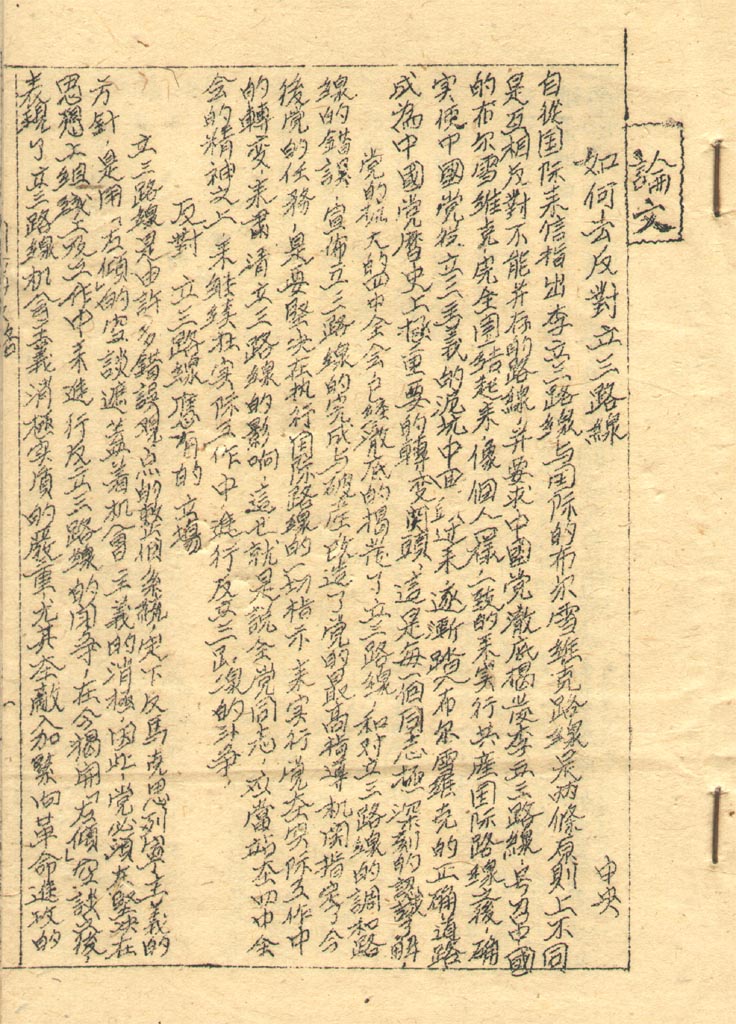 論文
如何去反對立三路線
中央
自從国际来信指出李立三路線与国际的布尔雪維克路線是两條原則上不同
是互相反對不能并存的路線，并要求中國党澈底揭發李立三路線，号召中國
的布尔雪維克，完全团結起来，像個人一樣一致的来实行共産国际路線之後，确
实使中國党從立三主義的泥坑中逐漸踏入布尔雪維克的正确道路
成為中國党曆史上極重要的轉变関頭，這是每一個同志極深刻的認識了解，
党的擴大的四中全会已經澈底的揭發了立三路線，和对立三路線的調和路
線的錯誤，宣佈立三路線的完成与破産改造了党的最高指導机関指定了今
後党的任務，是要堅决在执行国际路線的一切指示来实行党在实际工作中
的轉变，来肅清立三路線的影响，這也就是説全党同志，应當站在四中全
会的精神之上，来継续在实际工作中，進行反立三路線的斗争，
反對立三路線應有的立場
立三路線是由許多錯誤观点的整個系統，定下反馬克思列寧主義的
方針，是用「左傾」的空談遮盖着机会主義的消極，因此，党必須在堅决在
思想上組織上及工作中来進行反立三路線的闘争，在今揭開「左傾」空談之後，
表現了立三路線机会主義消極实质的嚴重，尤其在敵人加緊向革命進攻的